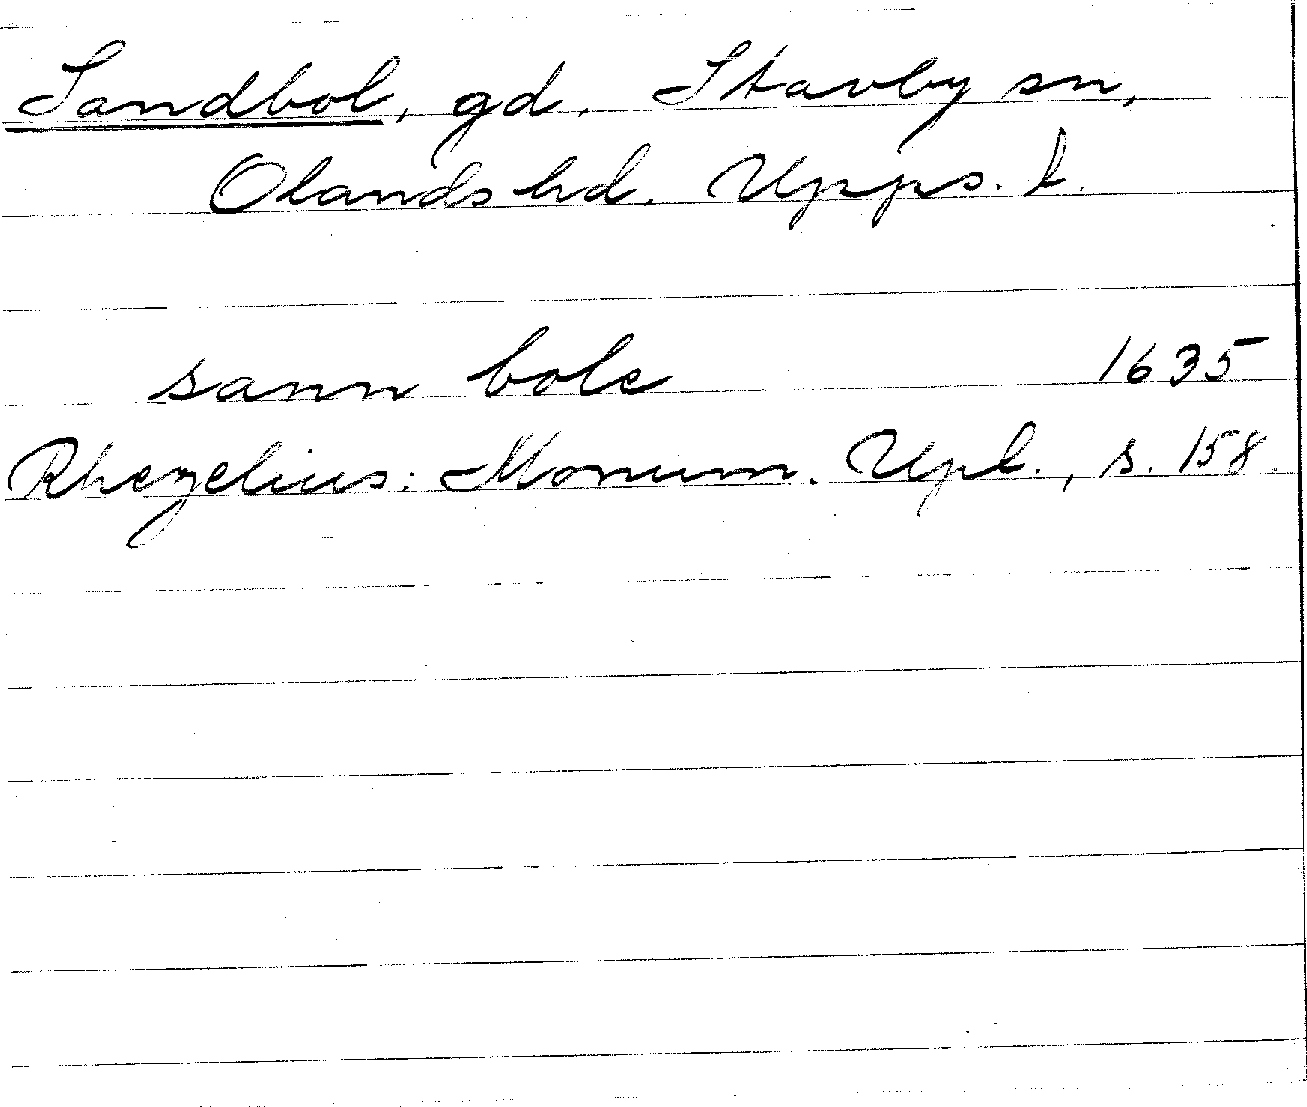 Sandbol, gd. Stavby sn,
Olands hd. Upps. l.
sann bole 1635
Rhezelius: Monum. Upl., s. 158.